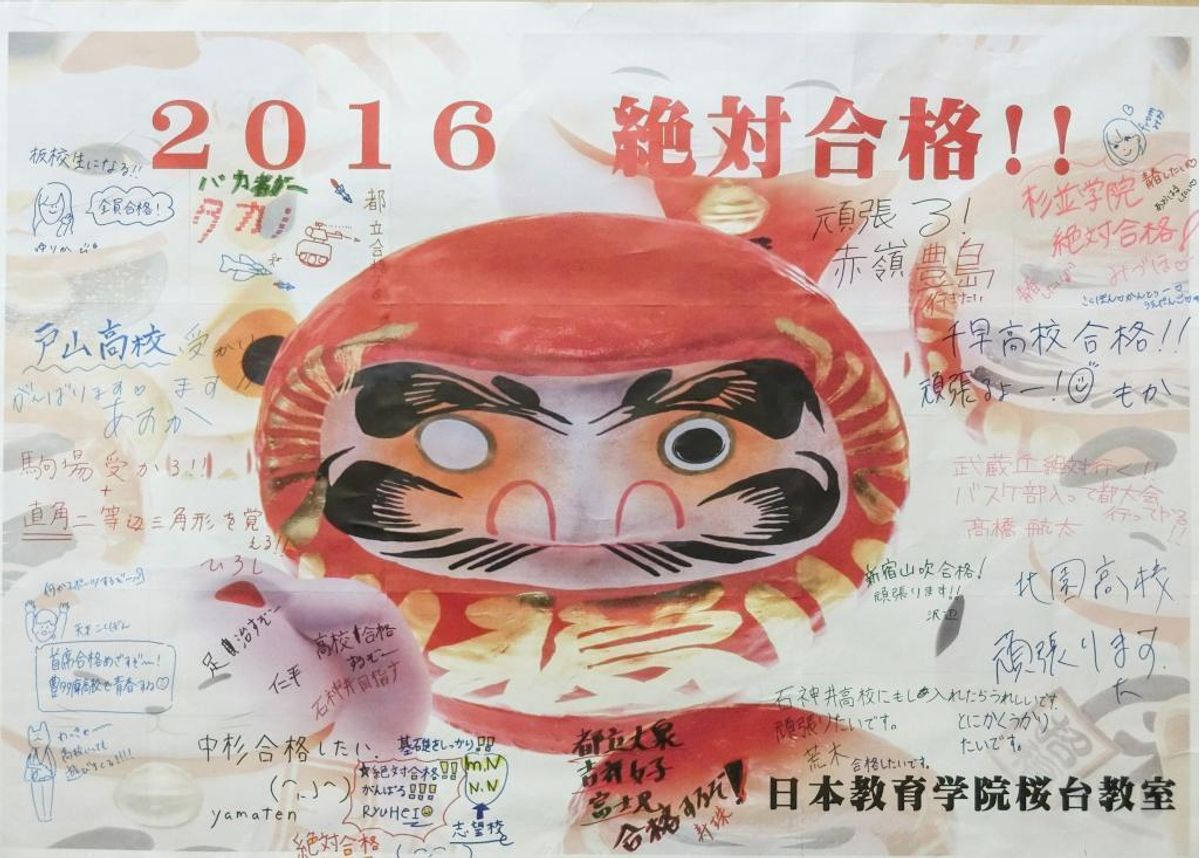 2016 絶対合格!!
板校生になる!!
全員合格!
バカ者がー
頑張る!
赤嶺豊島
行きたい
青春したい
杉並学院
絶対合格!
みづほ
戸山高校 受かり
ます!!
がんばります
あおか
千早高校合格!!
頑張るよー! もか
駒場受かる!!
+
直角二等辺三角形を覚
える!!
ひろし
武蔵丘絶対行く!!
バスケ部入って都大会
行ってやる!!
高橋航太
新宿山吹合格!
頑張ります!!
沢辺
北園高校
頑張ります
何かスポーツするぞー
首席合格めざすぞ〜!
足治すぞー
仁平
高校合格
するぞー
石神井目指す
石神井高校にもし入れたらうれしいです。
頑張りたいです。
とにかくうかり
たいです。
荒木 合格したいです。
中杉合格したい、
yamaten
基礎をしっかり!!
☆絶対合格!!
がんばろ!!!
RyuHeI
m.N
N.N
志望校
絶対合格
都立大泉
吉祥女子
富士見
合格するぞ!
日本教育学院桜台教室